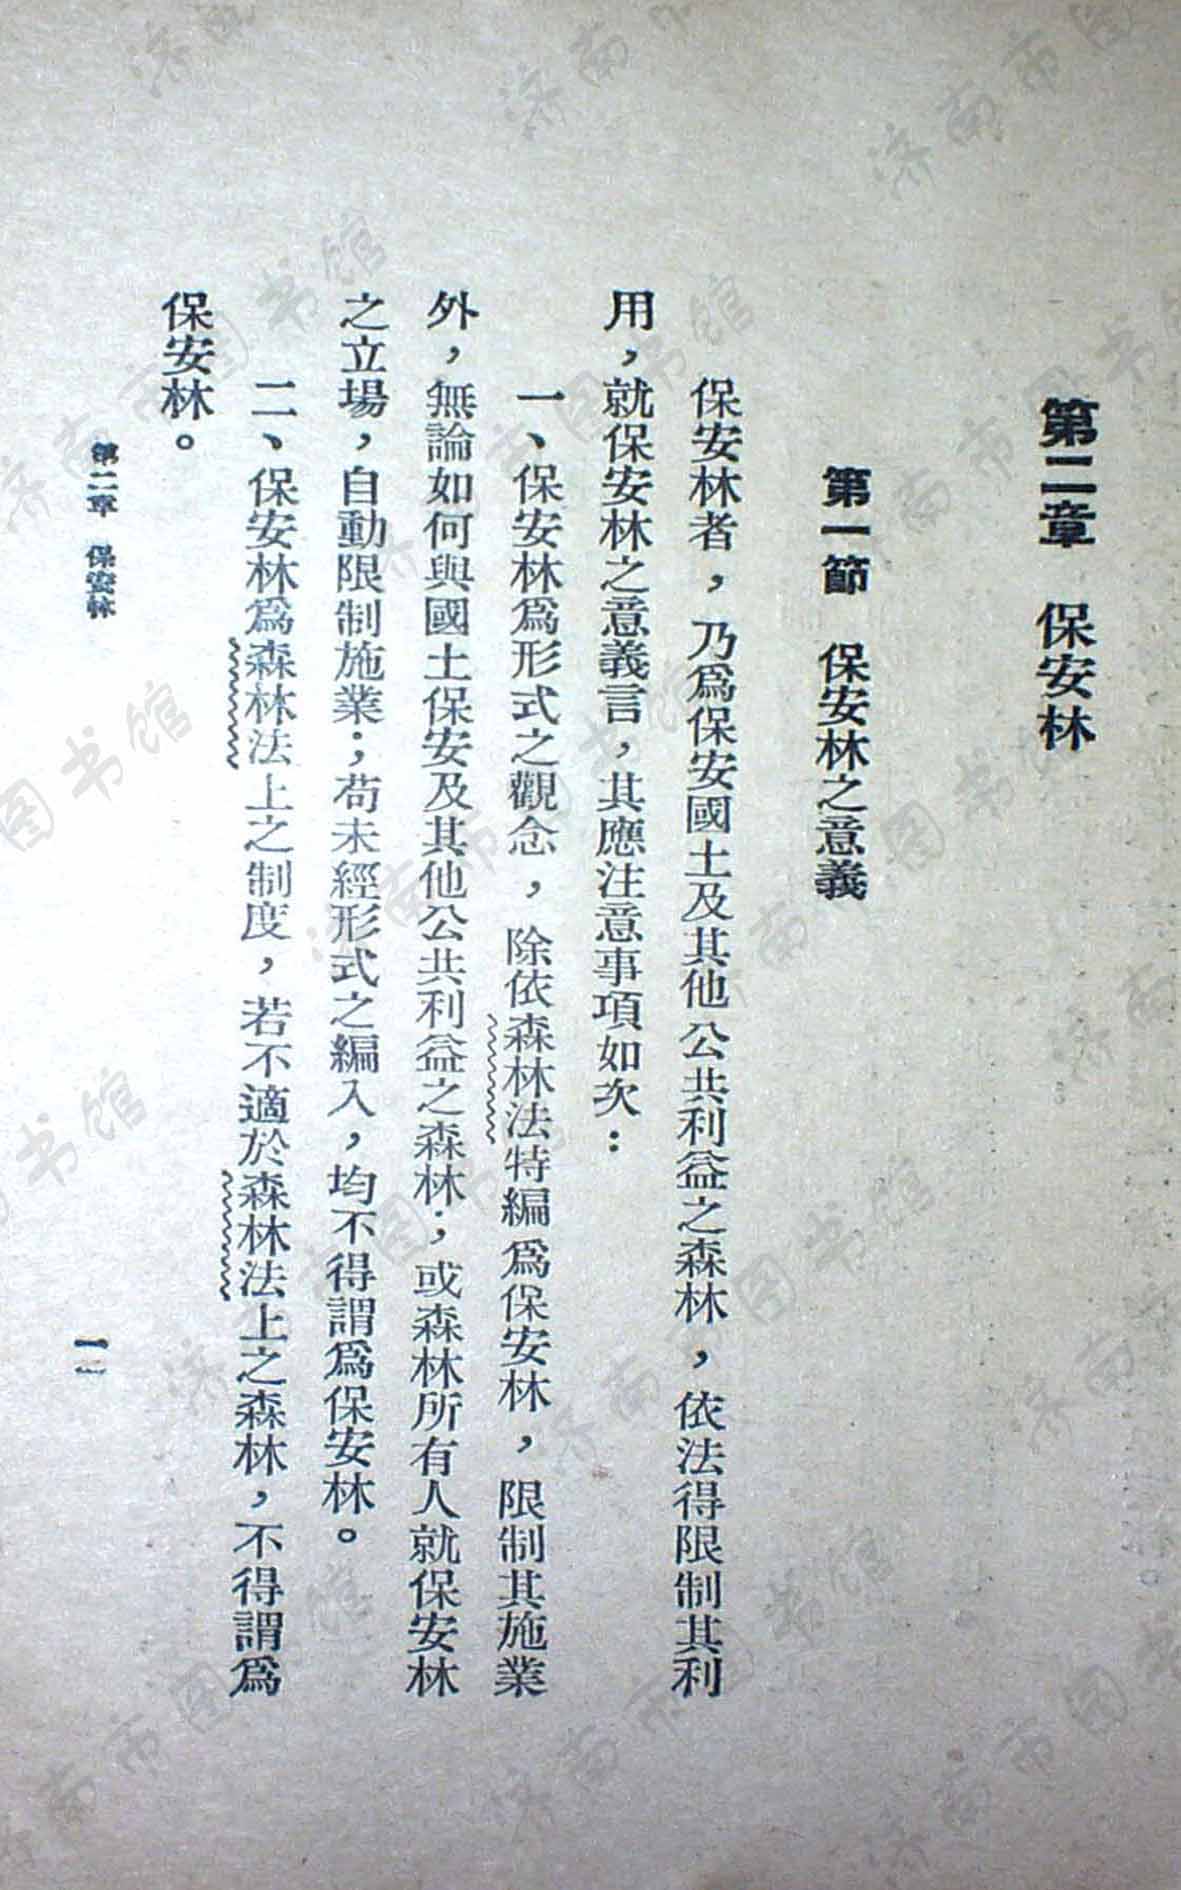 第二章　保安林
第一節　保安林之意義
保安林者，乃爲保安國土及其他公共利益之森林，依法得限制其利
用，就保安林之意義言，其應注意事項如次：
一、保安林爲形式之觀念，除依森林法特編爲保安林，限制其施業
外，無論如何與國土保安及其他公共利益之森林；或森林所有人就保安林
之立場，自動限制施業；苟未經形式之編入，均不得謂爲保安林。
二、保安林爲森林法上之制度，若不適於森林法上之森林，不得謂爲
保安林。
第二章　保安林
一一
济南市图书馆